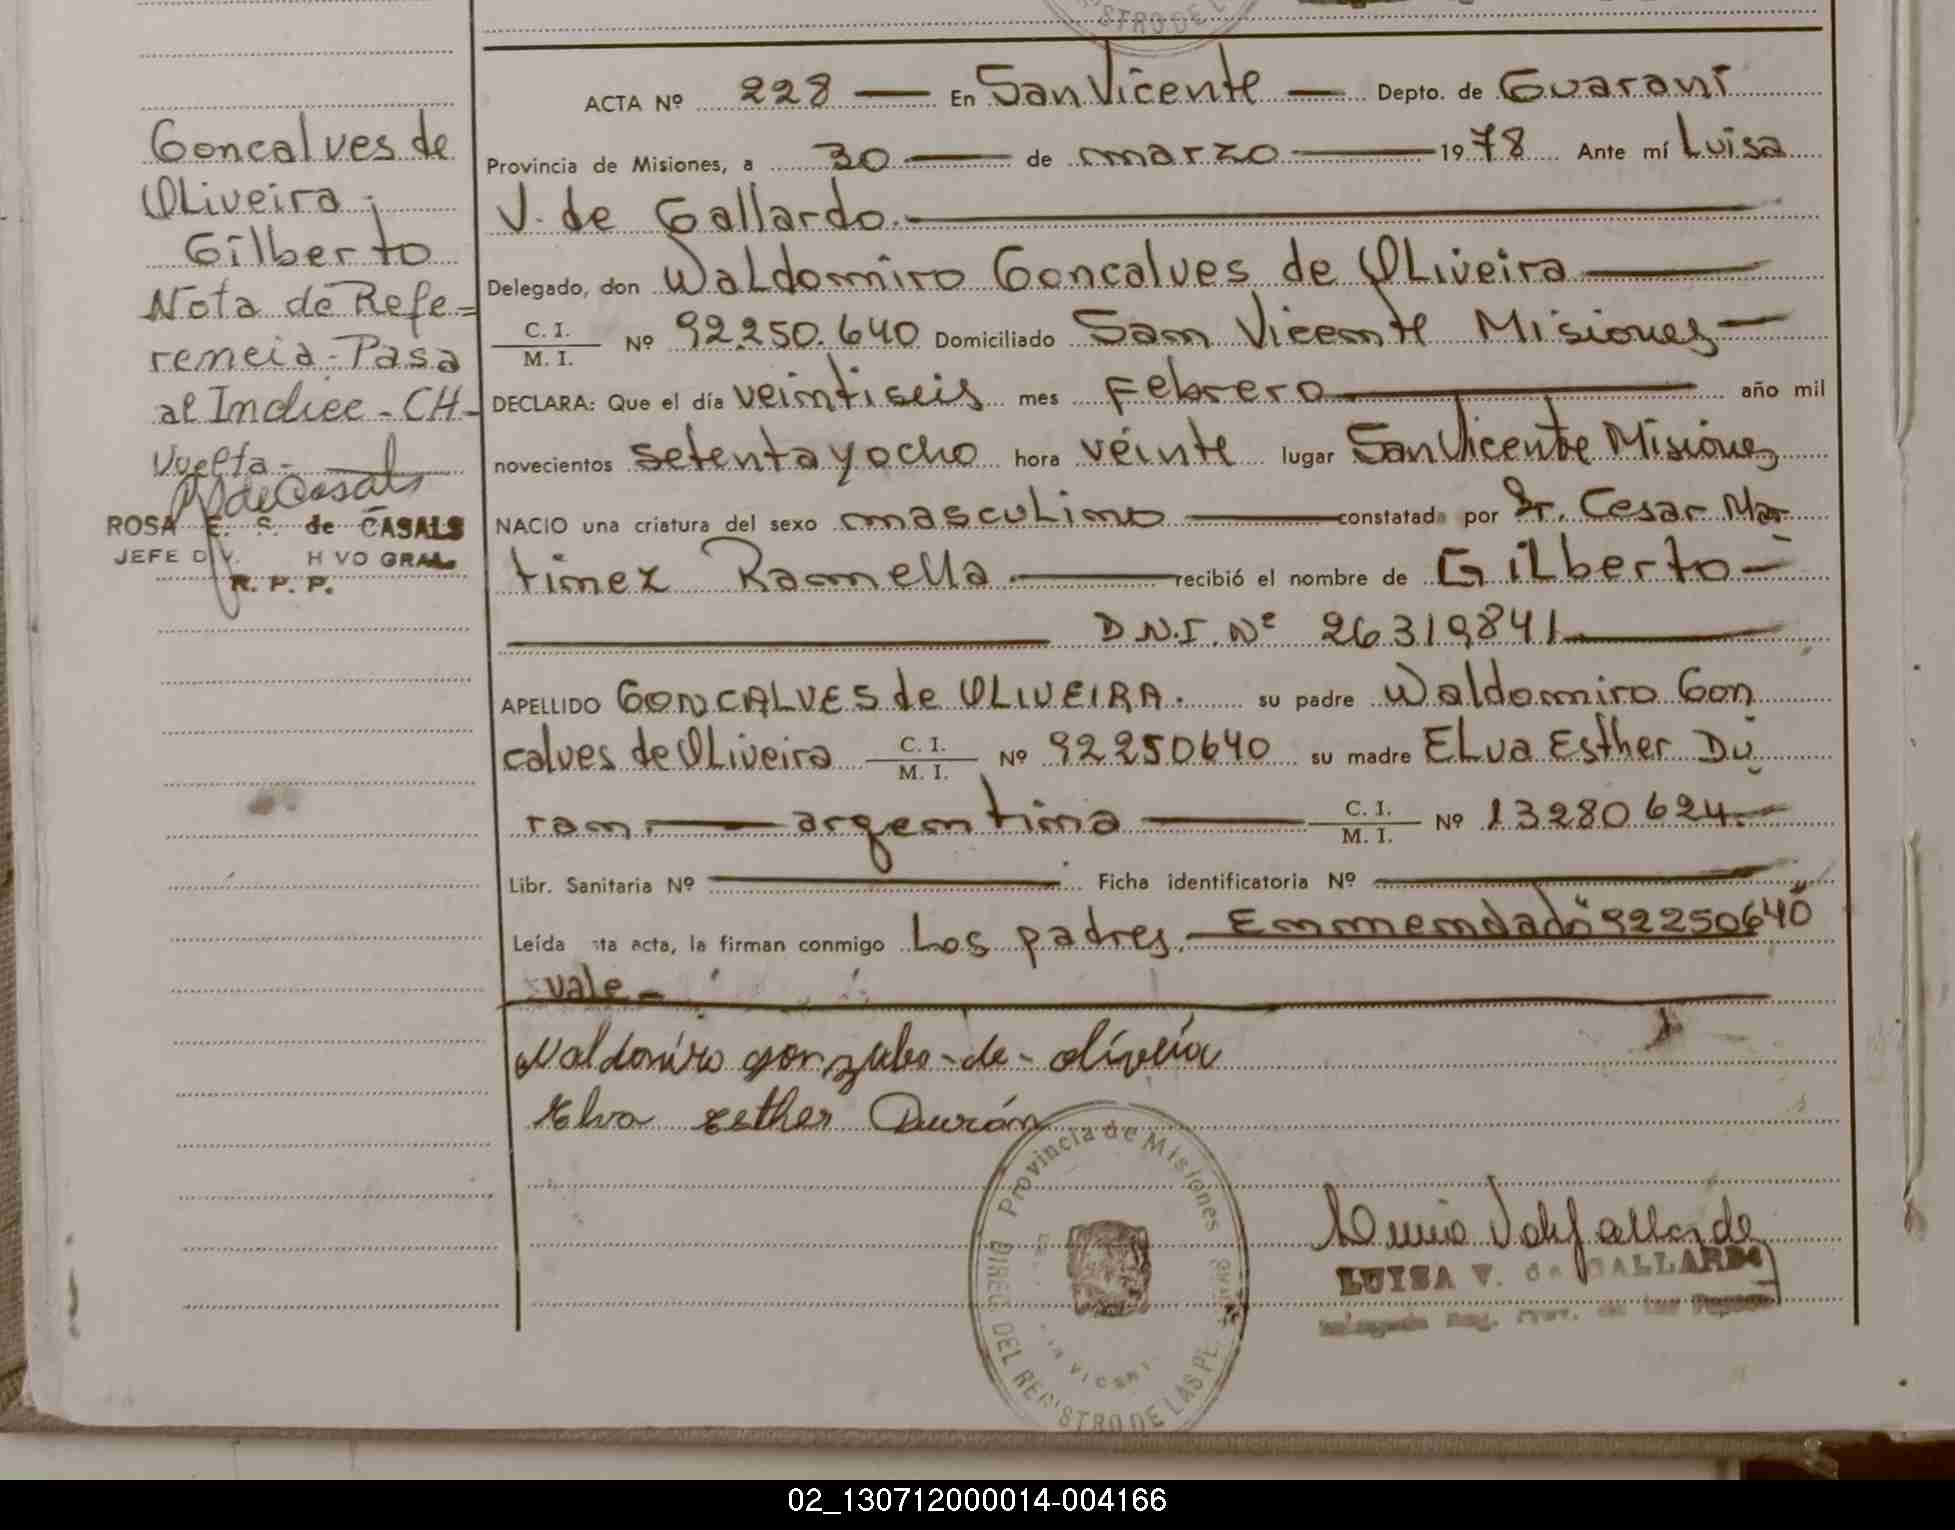 ACTA Nº 228 — En San Vicente — Depto. de Guaraní
Provincia de Misiones, a 30 — de marzo — 1978 Ante mí Luisa
V. de Gallardo. —
Delegado, don Waldomiro Goncalves de Oliveira —
C. I. / M. I. Nº 92.250.640 Domiciliado San Vicente Misiones —
DECLARA: Que el día veintiseis mes Febrero — año mil
novecientos setenta y ocho hora veinte lugar San Vicente Misiones
NACIO una criatura del sexo masculino — constatada por Dr. Cesar Mar
tinez Ramella — recibió el nombre de Gilberto —
— D.N.I. Nº 26319841 —
APELLIDO GONCALVES de OLIVEIRA. su padre Waldomiro Gon
calves de Oliveira C. I. / M. I. Nº 92250640 su madre Elva Esther Du
ran — argentina — C. I. / M. I. Nº 13280624. —
Libr. Sanitaria Nº — Ficha identificatoria Nº —
Leída sta acta, la firman conmigo Los padres. Enmendado "92250640
vale —
Goncalves de
Oliveira
Gilberto
Nota de Refe=
rencia - Pasa
al Indice - CH -
Vuelta -
ROSA E. S. de CASALS
R. P. P.
Waldomiro gonzalves - de - oliveira
Elva Esther Durán
Provincia de Misiones
DEL REGISTRO DE LAS PE
LUISA V. de GALLARDO
STRO DE L
02_130712000014-004166